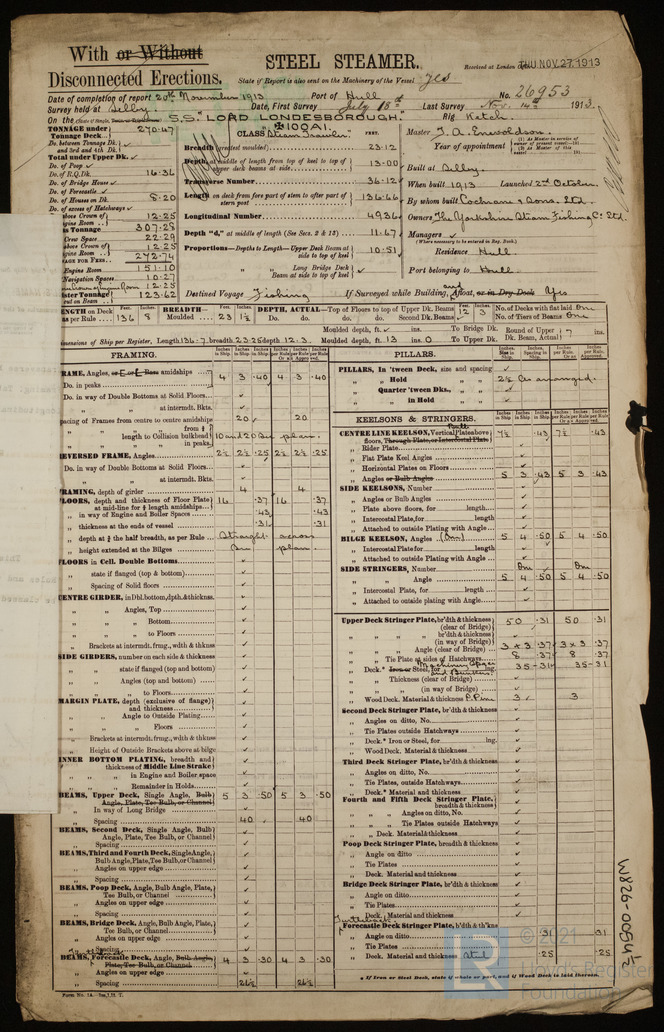 With ~~or Without~~
Disconnected Erections.
STEEL STEAMER.
Received at London Office THU. NOV. 27. 1913
State if Report is also sent on the Machinery of the Vessel Yes
Date of completion of report 20th November 1913 Port of Hull No. 26953
Survey held at Selby Date, First Survey July 15th Last Survey Nov. 14th 1913.
On the S.S. "LORD LONDESBOROUGH" Rig Ketch.
TONNAGE under Tonnage Deck 270.47
CLASS 100A1 Steam Trawler. FEET.
Master T. A. Enevoldson.
Do. Between Tonnage Dk. and 3rd and 4th Dk.
Breadth (greatest moulded) 23.12
Year of appointment
Total under Upper Dk.
Do. of Poop
Depth, at middle of length from top of keel to top of upper deck beams at side 13.00
Built at Selby.
Do. of R.Q.Dk. 16.36
Transverse Number 36.12
When built 1913 Launched 2nd October.
Do. of Bridge House
Do. of Forecastle
Do. of Houses on Dk. 8.20
Length on deck from fore part of stem to after part of stern post 136.66
By whom built Cochrane & Sons. Ltd.
Do. of excess of Hatchways
Longitudinal Number 4936
Owners The Yorkshire Steam Fishing Co. Ltd.
12.25
Tonnage 307.28
Depth "d," at middle of length (See Secs. 2 & 13) 11.67
Managers
(Where necessary to be entered in Reg. Book.)
Crew Space 22.29
12.25
Proportions—Depths to Length—Upper Deck Beam at side to top of keel 10.51
Residence Hull
272.74
Engine Room 151.10
" Long Bridge Deck Beam at side to top of keel
Port belonging to Hull
Navigation Spaces 10.27
12.25
Register Tonnage 123.62
Destined Voyage Fishing If Surveyed while Building, and Afloat, ~~or in Dry Dock~~ Yes
LENGTH on Deck as per Rule 136 8 BREADTH—Moulded 23 1½ DEPTH, ACTUAL—Top of Floors to top of Upper Dk. Beams 12 3 No. of Decks with flat laid One
Do. do. do. Second Dk. Beams No. of Tiers of Beams One
Moulded depth, ft. ins. To Bridge Dk. Round of Upper Dk. Beam, Actual 7 ins.
Dimensions of Ship per Register, Length 136.7 breadth 23.25 depth 12.3 Moulded depth, ft. 13 ins. 0 To Upper Dk.
FRAMING.
FRAME, Angles, amidships 4 3 .40 4 3 .40
Do. in peaks
Do. in way of Double Bottoms at Solid Floors
" " at intermdt. Bkts.
Spacing of Frames from centre to centre amidships 20 20
" length to Collision bulkhead
" " in peaks
REVERSED FRAME, Angles 2½ 2½ .25 2½ 2½ .25
Do. in way of Double Bottoms at Solid Floors
" " at intermdt. Bkts.
FRAMING, depth of girder 4 4
FLOORS, depth and thickness of Floor Plate at mid-line for ½ length amidships 16 .37 16 .37
" in way of Engine and Boiler Spaces .43 .43
" thickness at the ends of vessel .31 .31
" depth at ¾ the half breadth, as per Rule Straight across
" height extended at the Bilges See plan.
FLOORS in Cell. Double Bottoms
" state if flanged (top & bottom)
" Spacing of Solid floors
CENTRE GIRDER, in Dbl. bottom, dpth. & thickns.
" Angles, Top
" " Bottom
" " to Floors
" Brackets at intermdt. frmg., wdth & thknss
SIDE GIRDERS, number on each side & thickness
" state if flanged (top and bottom)
" Angles (top and bottom)
" " to Floors
MARGIN PLATE, depth (exclusive of flange) and thickness
" Angle to Outside Plating
" " Floors
" Brackets at intermdt. frmg., wdth & thkns
" Height of Outside Brackets above at bilge
INNER BOTTOM PLATING, breadth and thickness of Middle Line Strake
" " in Engine and Boiler space
" Remainder in Holds
BEAMS, Upper Deck, Single Angle, ~~Bulb Angle, Plate, Tee Bulb, or Channel~~ 5 3 .50 5 3 .50
" In way of Long Bridge
" Spacing 40 40
BEAMS, Second Deck, Single Angle, Bulb Angle, Plate, Tee Bulb, or Channel
" Spacing
BEAMS, Third and Fourth Deck, Single Angle, Bulb Angle, Plate, Tee Bulb, or Channel
" Angles on upper edge
" Spacing
BEAMS, Poop Deck, Angle, Bulb Angle, Plate, Tee Bulb, or Channel
" Angles on upper edge
" Spacing
BEAMS, Bridge Deck, Angle, Bulb Angle, Plate, Tee Bulb, or Channel
" Angles on upper edge
" Spacing
BEAMS, Forecastle Deck, Angle, ~~Bulb Angle, Plate, Tee Bulb, or Channel~~ 4 3 .30 4 3 .30
" Angles on upper edge
" Spacing
Form No. 1A.
PILLARS.
PILLARS, In 'tween Deck, size and spacing
" " Hold 2½ as arranged.
" Quarter 'tween Dks., "
" in Hold
KEELSONS & STRINGERS.
CENTRE LINE KEELSON, Vertical Plate above floors, ~~Through Plate, or Intercostal Plate~~ 7½ .43 7½ .43
" Rider Plate
" Flat Plate Keel Angles
" Horizontal Plates on Floors
" Angles ~~or Bulb Angles~~ 5 3 .43 5 3 .43
SIDE KEELSONS, Number
" Angles or Bulb Angles
" Plate above floors, for length
" Intercostal Plate, for length
" Attached to outside Plating with Angle
BILGE KEELSON, Angles (One) 5 4 .50 5 4 .50
" Intercostal Plate for length
" Attached to outside Plating with Angle
SIDE STRINGERS, Number One One
" Angle 5 4 .50 5 4 .50
" Intercostal Plate, for length
" Attached to outside plating with Angle
Upper Deck Stringer Plate, br'dth & thickness (clear of Bridge) 50 .31 50 .31
" " br'dth & thickness (in way of Bridge)
" Angle (clear of Bridge) 3 x 3 .37 3 x 3 .37
" Tie Plate at sides of Hatchways 8 .37 8 .37
" Deck.* ~~Iron or~~ Steel, for 35-31 35-31
" Thickness (clear of Bridge)
" " (in way of Bridge)
" Wood Deck. Material & thickness P. Pine 3 3
Second Deck Stringer Plate, br'dth & thickness
" Angles on ditto, No.
" Tie Plates outside Hatchways
" Deck.* Iron or Steel, for lng.
" Wood Deck. Material & thickness
Third Deck Stringer Plate, br'dth & thickness
" Angles on ditto, No.
" Tie Plates, outside Hatchways
" Deck.* Material and thickness
Fourth and Fifth Deck Stringer Plate, breadth & thickness
" Angles on ditto, No.
" Tie Plates outside Hatchways
" Deck. Material & thickness
Poop Deck Stringer Plate, breadth & thickness
" Angle on ditto
" Tie Plates
" Deck. Material and thickness
Bridge Deck Stringer Plate, br'dth & thickness
" Angle on ditto
" Tie Plates
" Deck. Material and thickness
Forecastle Deck Stringer Plate, b'dth & th'kns
" Angle on ditto .31 .31
" Tie Plates
" Deck. Material and thickness Steel .25 .25
* If Iron or Steel Deck, state if whole or part, and if Wood Deck is laid thereon.
W826-0054½
LR
© 2021
Lloyd's Register
Foundation